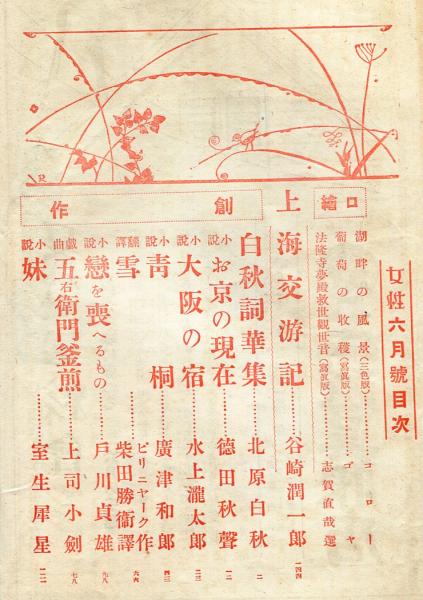 女性六月號目次
口繪
湖畔の風景(三色版)……コロー
葡萄の收穫(寫眞版)……ゴヤ
法隆寺夢殿救世觀世音(寫眞版)……志賀直哉選
上海交游記……谷崎潤一郎 一四四
創作
白秋詞華集……北原白秋 二
小說 お京の現在……德田秋聲 一二
小說 大阪の宿……水上瀧太郎 二三
小說 靑桐……廣津和郎 四三
飜譯 雪……ピリニヤーク作 柴田勝衞譯 六六
小說 戀を喪へるもの……戶川貞雄 九八
戲曲 五右衞門釜煎……上司小劍 七八
小說 妹……室生犀星 一二一